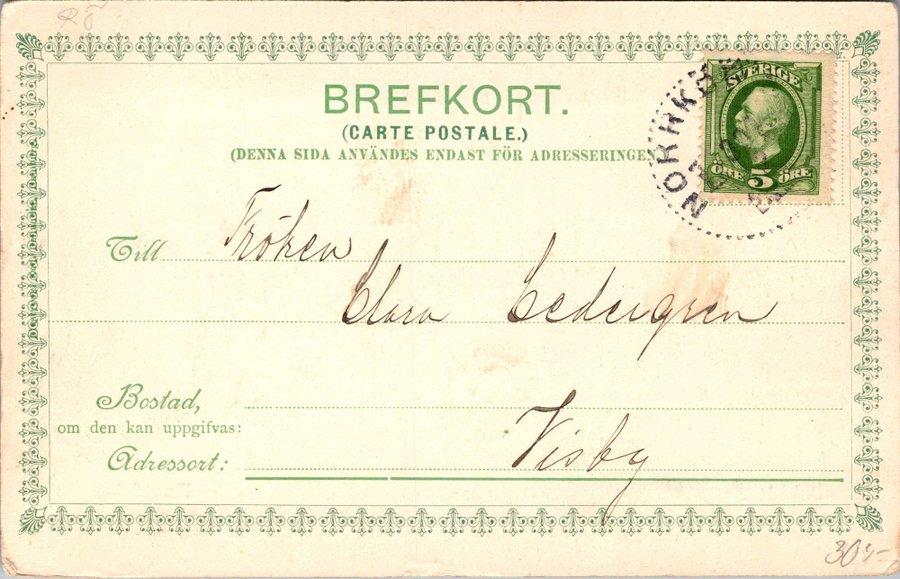 BREFKORT.
(CARTE POSTALE.)
(DENNA SIDA ANVÄNDES ENDAST FÖR ADRESSERINGEN.)
SVERIGE
ÖRE 5 ÖRE
Till Fröken
Clara Cedergren
Bostad,
om den kan uppgifvas:
Visby
Adressort:
30:-